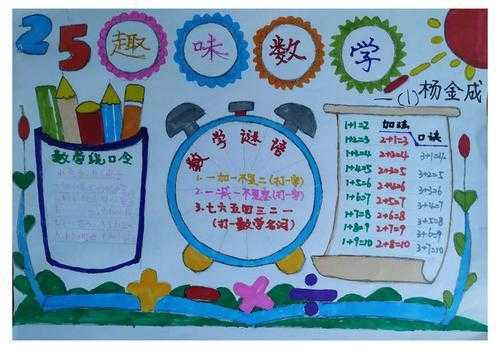 25 趣味数学
一(1) 杨金成
数学绕口令
数学谜语
1.一加一不是二(打一字)
2.一减一不是零(打一字)
3.七六五四三二一
(打一数学名词)
加法口诀
1+1=2
1+2=3 2+1=3
1+3=4 2+2=4 3+1=4
1+4=5 2+3=5 3+2=5
1+5=6 2+4=6 3+3=6
1+6=7 2+5=7 3+4=7
1+7=8 2+6=8 3+5=8
1+8=9 2+7=9 3+6=9
1+9=10 2+8=10 3+7=10